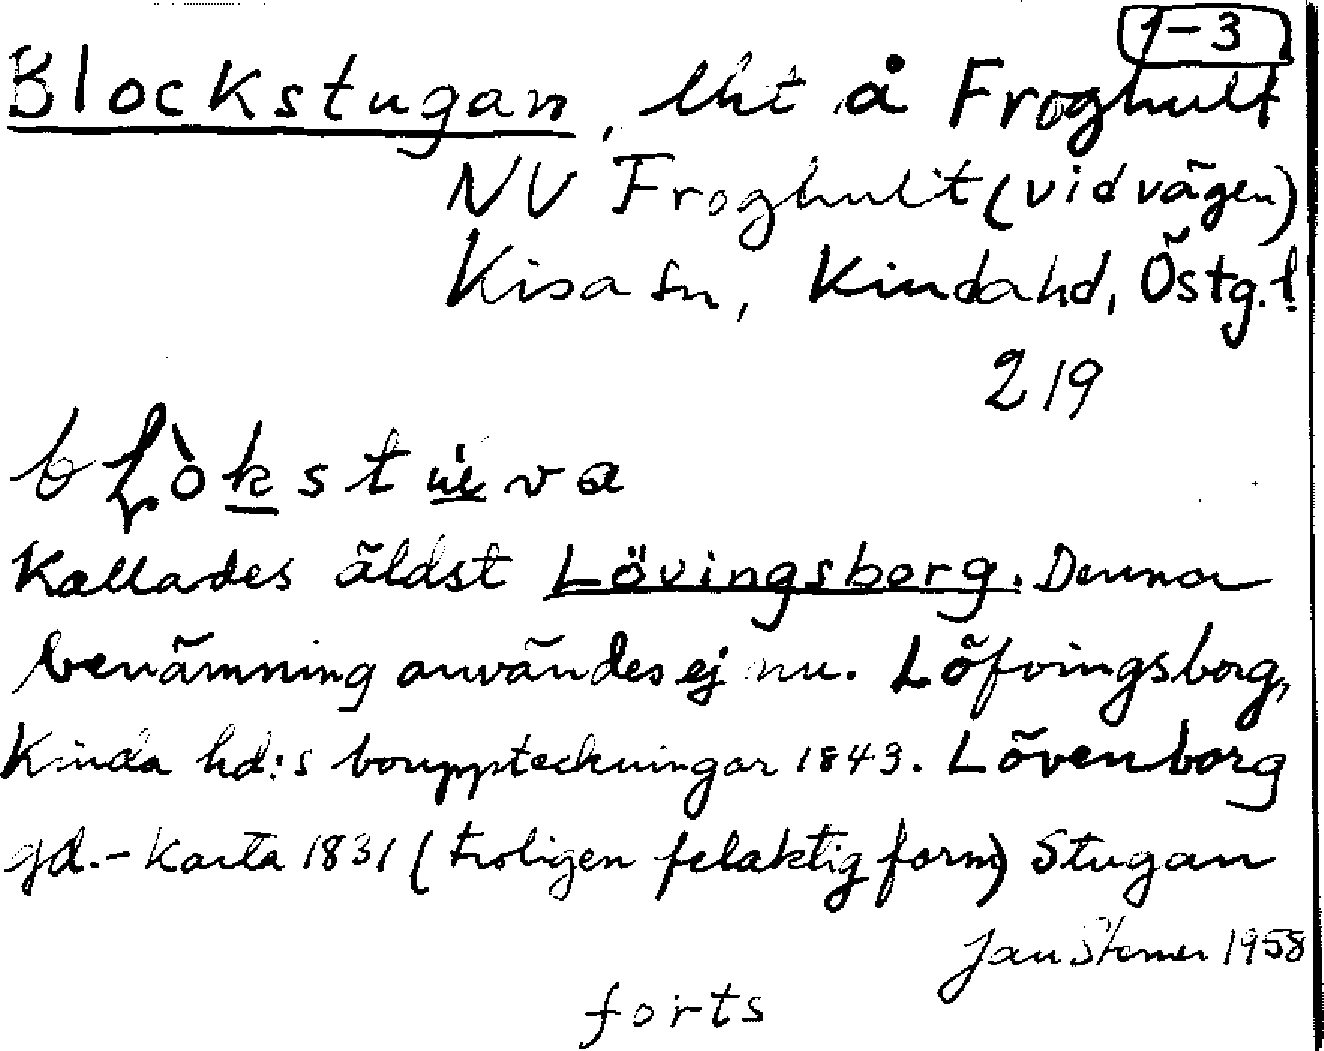 1-3
Blockstugan, lht å Froghult
NV Froghult (vid vägen)
Kisa sn, Kinda hd, Östg. l
219
Kallades äldst Lövingsborg. Denna
benämning användes ej nu. Löfvingsborg,
Kinda hd:s bouppteckningar 1843. Lövenborg
gd.- Karta 1831 (troligen felaktig form) Stugan
Jan 1958
forts